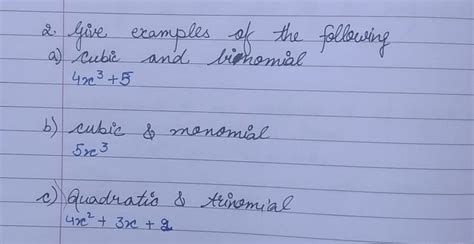 2. Give examples of the following
a) cubic and binomial
4x³+5
b) cubic & monomial
5x³
c) Quadratic & trinomial
4x² + 3x + 2